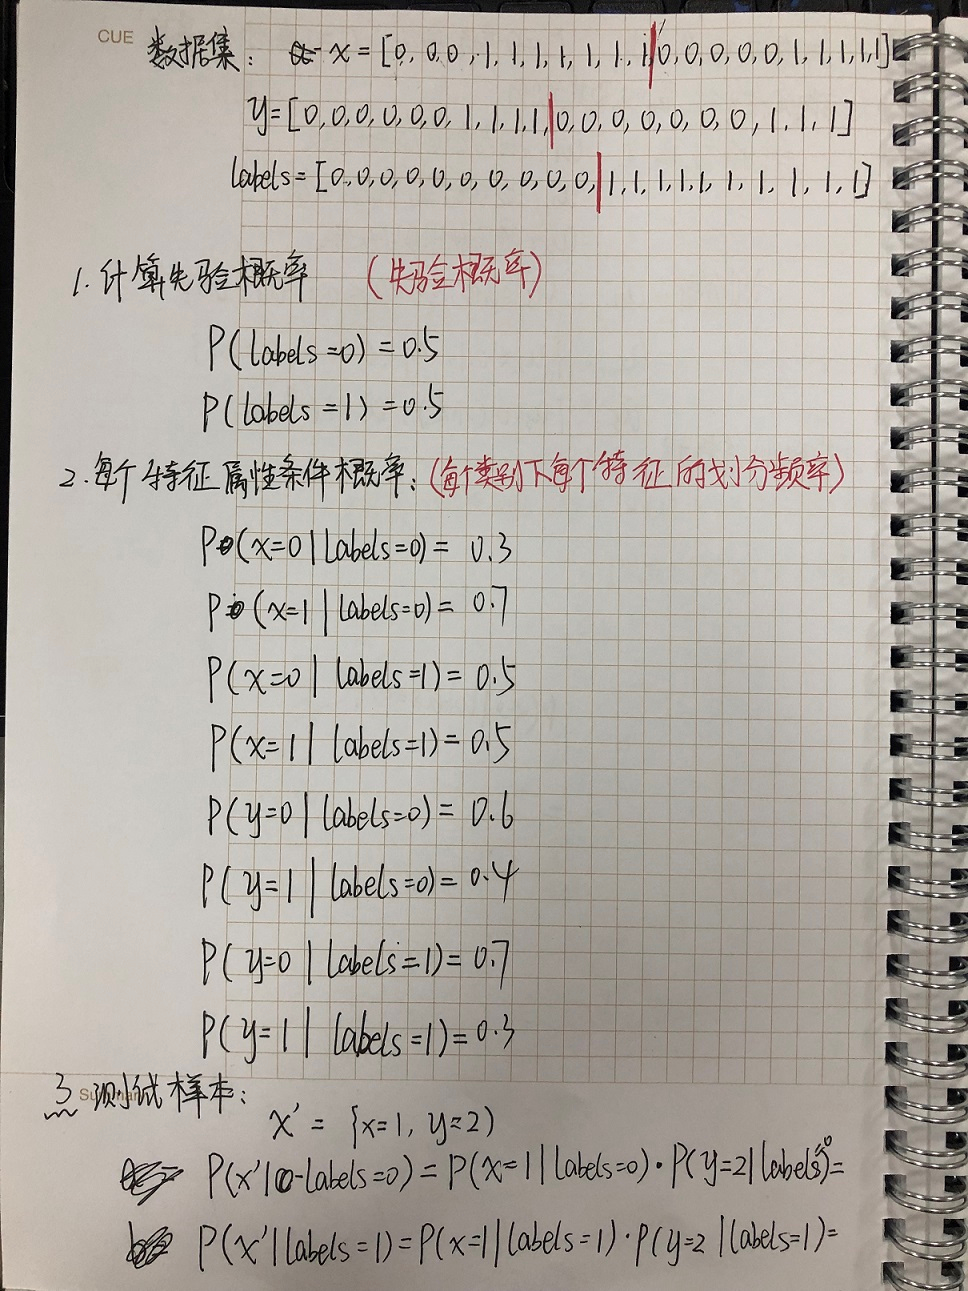 CUE
数据集: x = [0,0,0,1,1,1,1,1,1,1,0,0,0,0,0,1,1,1,1,1]
y=[0,0,0,0,0,0,1,1,1,1,0,0,0,0,0,0,0,1,1,1]
labels=[0,0,0,0,0,0,0,0,0,0,1,1,1,1,1,1,1,1,1,1]
1.计算先验概率 (先验概率)
P(labels=0)=0.5
P(labels=1)=0.5
2.每个特征属性条件概率:(每个类别下每个特征的划分频率)
P(x=0|labels=0)= 0.3
P(x=1|labels=0)= 0.7
P(x=0|labels=1)= 0.5
P(x=1|labels=1)= 0.5
P(y=0|labels=0)= 0.6
P(y=1|labels=0)= 0.4
P(y=0|labels=1)= 0.7
P(y=1|labels=1)= 0.3
3 测试样本:
x' = {x=1, y=2)
P(x'|labels=0) = P(x=1|labels=0)·P(y=2|labels=0)=
P(x'|labels=1)=P(x=1|labels=1)·P(y=2|labels=1)=